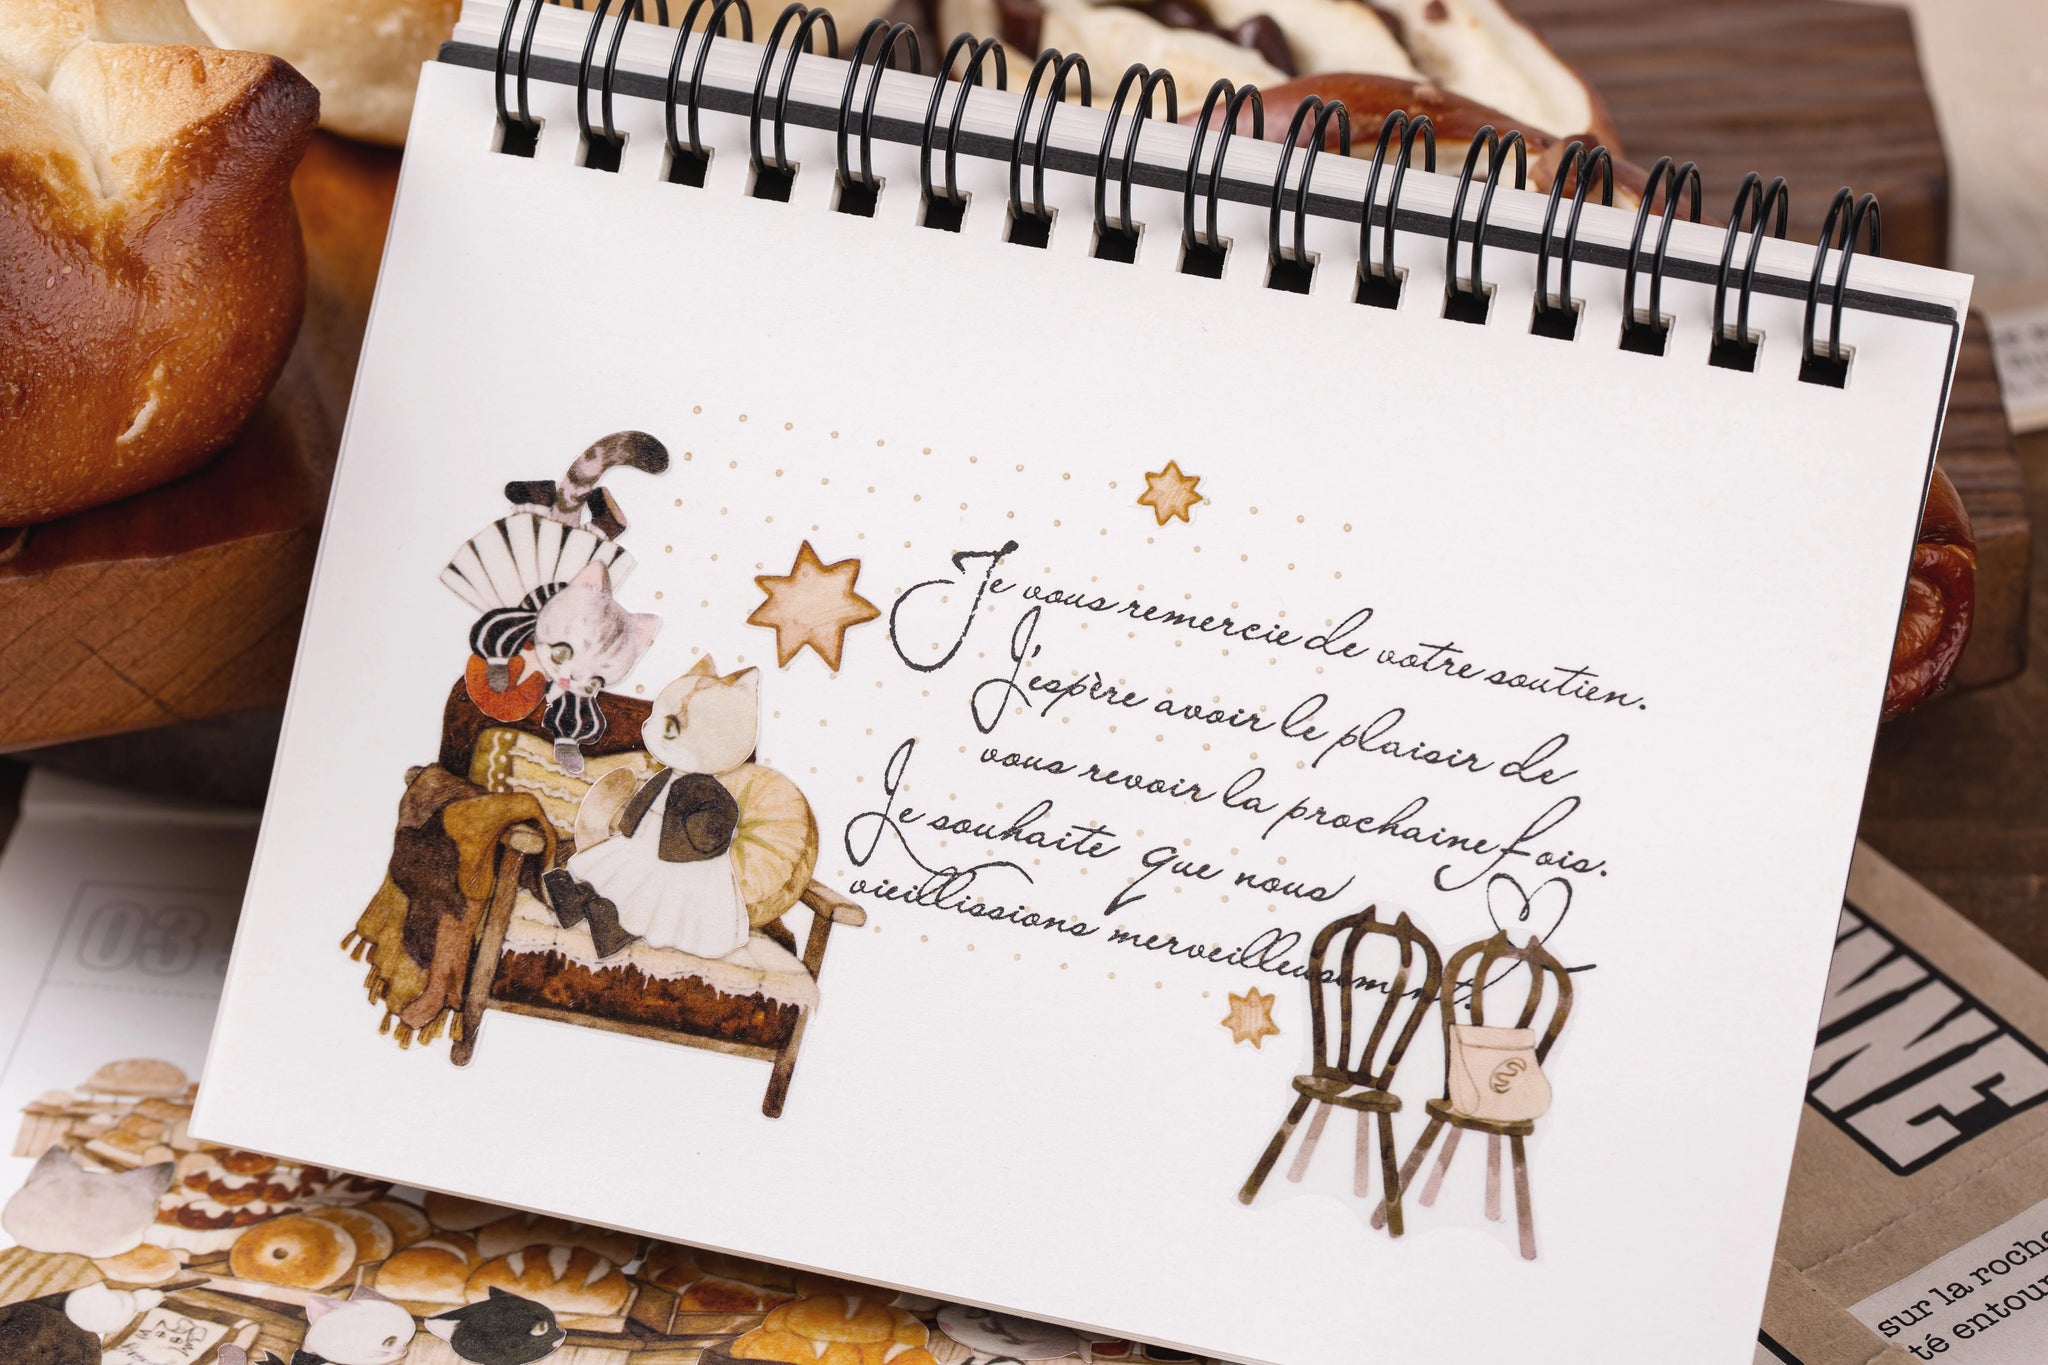 Je vous remercie de votre soutien.
J'espère avoir le plaisir de
vous revoir la prochaine fois.
Je souhaite que nous
vieillissions merveilleusement.
03
NNE
sur la roche
té entour